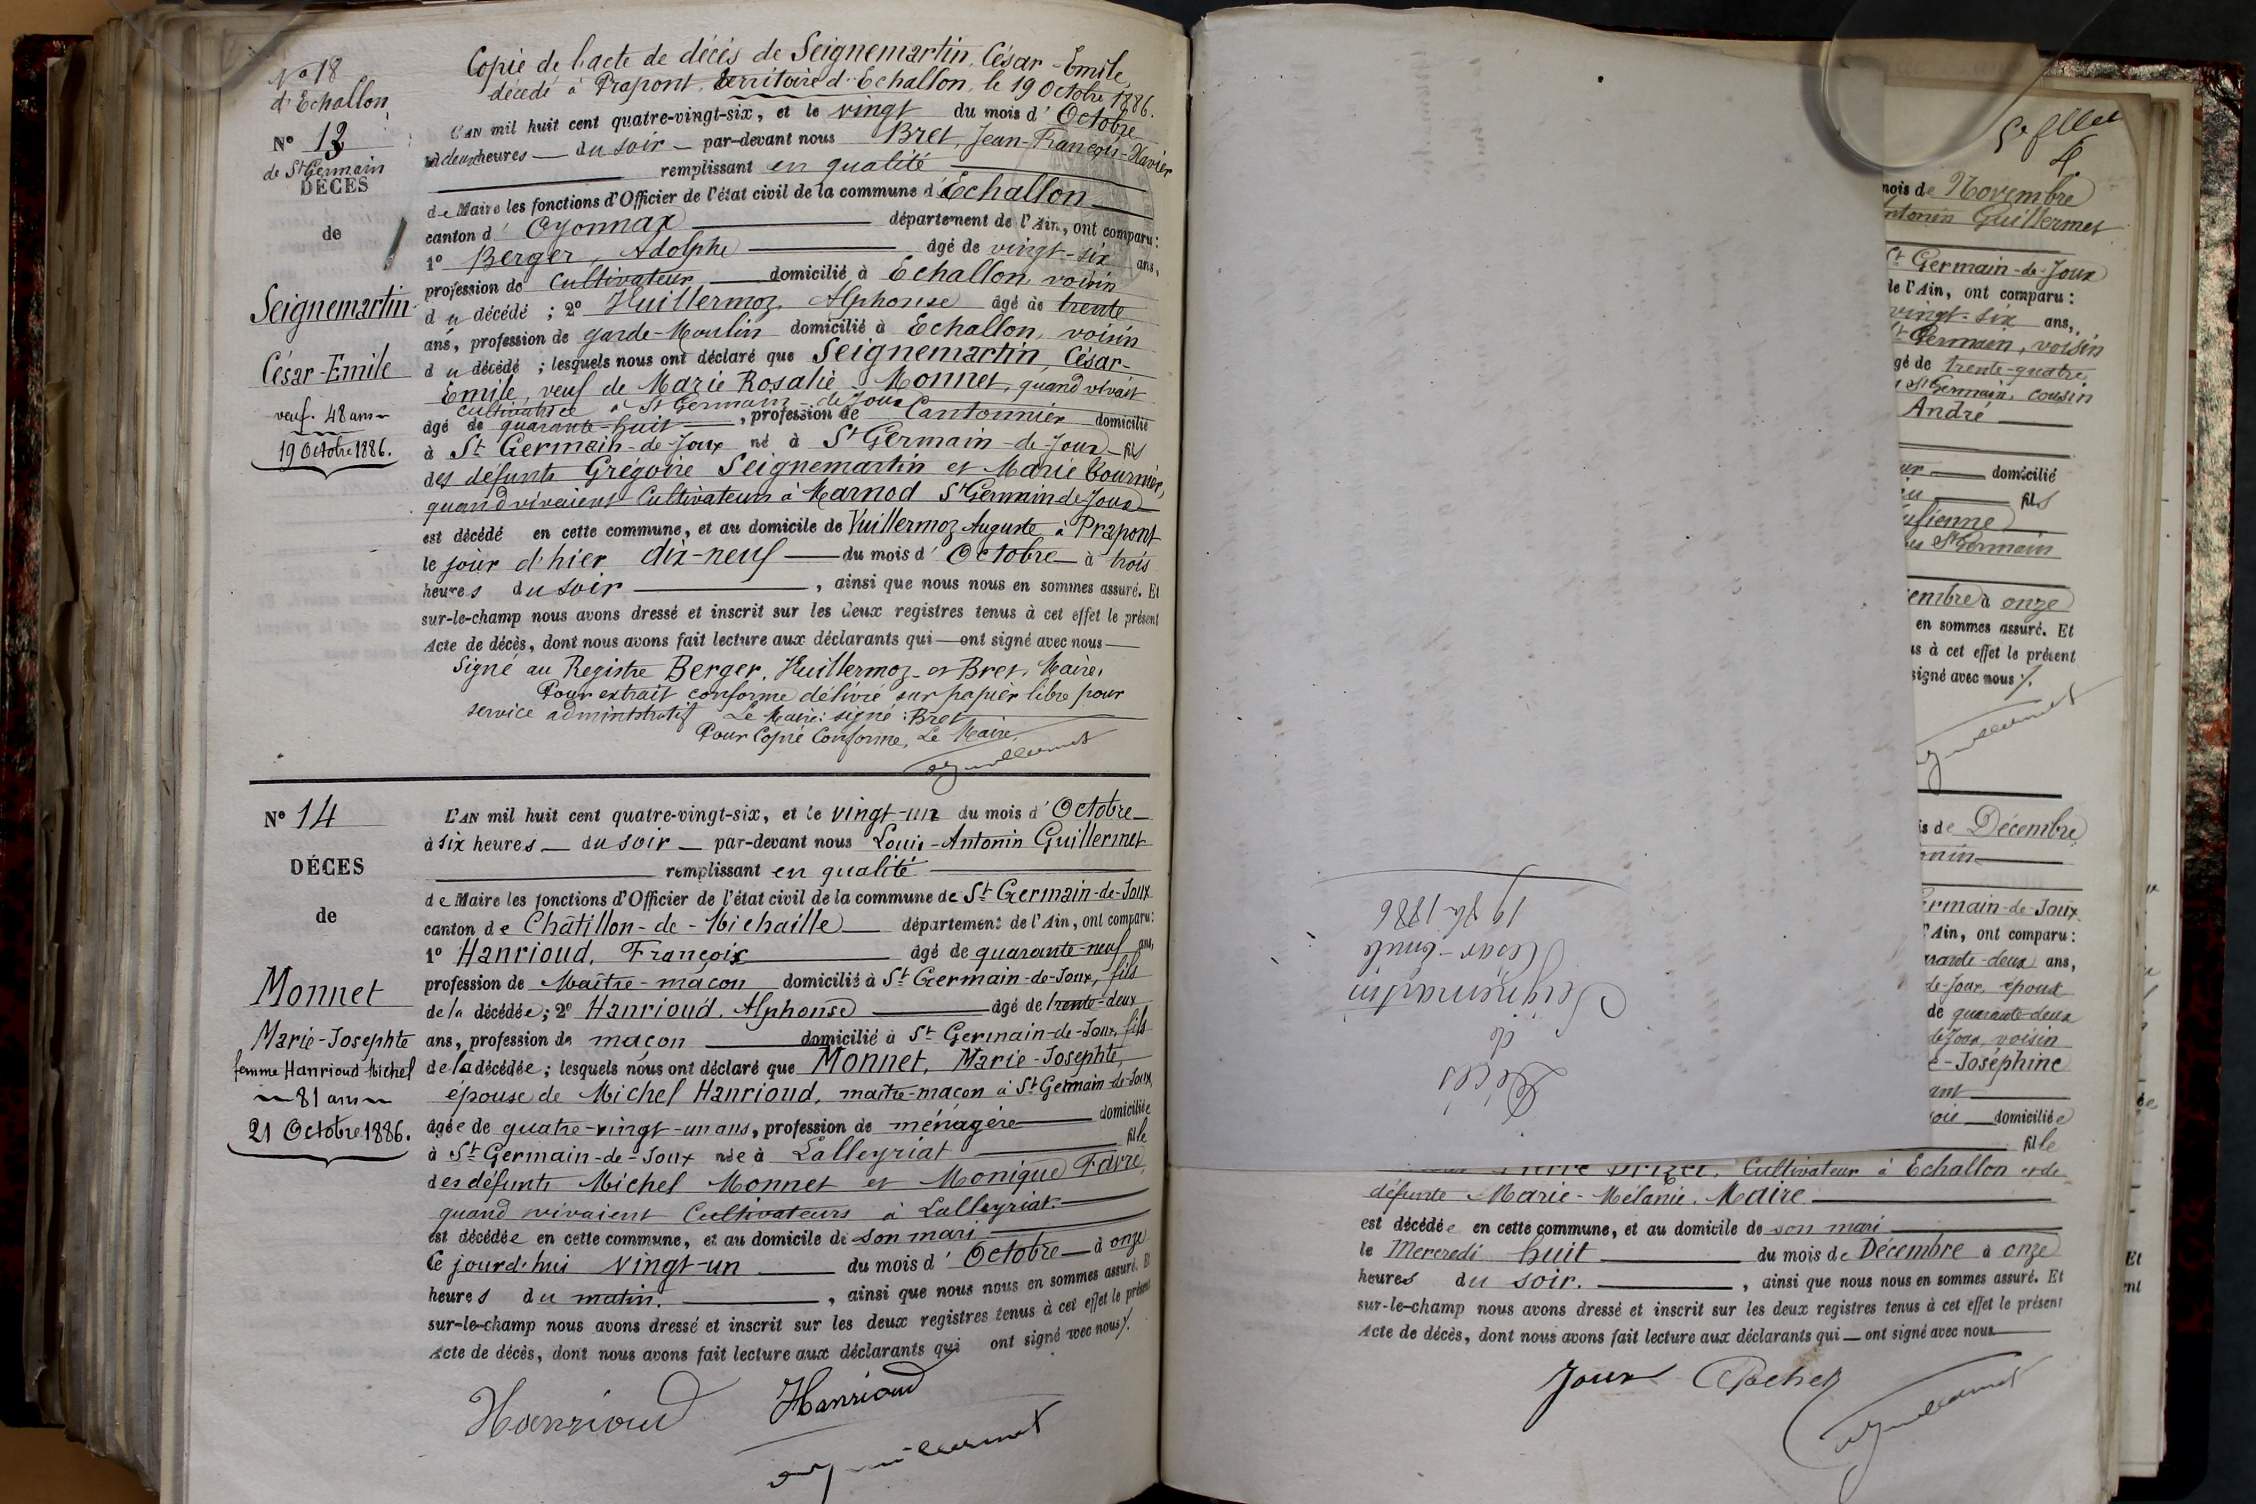 No 18
d'Echallon
N° 13
de St Germain
DÉCES
de
Seignemartin
César-Emile
veuf. 48 ans
19 Octobre 1886.
Copie de l'acte de décès de Seignemartin, César-Emile,
décédé à Prapont, territoire d'Echallon, le 19 Octobre 1886.
L'AN mil huit cent quatre-vingt-six, et le vingt du mois d'Octobre
à deux heures du soir par-devant nous Bret, Jean-François-Xavier
remplissant en qualité
de Maire les fonctions d'Officier de l'état civil de la commune d'Echallon
canton d'Oyonnax département de l'Ain, ont comparu:
1° Berger, Adolphe âgé de vingt-six ans,
profession de cultivateur domicilié à Echallon, voisin
du décédé ; 2° Vuillermoz, Alphonse âgé de trente
ans, profession de garde-Moulin domicilié à Echallon, voisin
du décédé ; lesquels nous ont déclaré que Seignemartin, César-
Emile, veuf de Marie Rosalie Monnet, quand vivait
cultivatrice à St Germain-de-Joux
âgé de quarante-huit , profession de Cantonnier domicilié
à St Germain-de-Joux né à St Germain-de-Joux fils
des défunts Grégoire Seignemartin et Marie Tournier,
quand vivaient Cultivateurs à Marnod St Germain de Joux
est décédé en cette commune, et au domicile de Vuillermoz Auguste à Prapont
le jour d'hier dix-neuf du mois d'Octobre à trois
heures du soir , ainsi que nous nous en sommes assuré. Et
sur-le-champ nous avons dressé et inscrit sur les deux registres tenus à cet effet le présent
Acte de décès, dont nous avons fait lecture aux déclarants qui ont signé avec nous
Signé au Registre Berger, Vuillermoz et Bret, Maire.
Pour extrait conforme délivré sur papier libre pour
service administratif Le Maire: signé : Bret
Pour Copie Conforme, Le Maire,
aguillermet
N° 14
DÉCES
de
Monnet
Marie-Josephte
femme Hanrioud Michel
81 ans
21 Octobre 1886.
L'AN mil huit cent quatre-vingt-six, et le vingt-un du mois d'Octobre
à six heures du soir par-devant nous Louis-Antonin Guillermet
remplissant en qualité
de Maire les fonctions d'Officier de l'état civil de la commune de St Germain-de-Joux
canton de Châtillon-de-Michaille département de l'Ain, ont comparu:
1° Hanrioud, François âgé de quarante-neuf ans,
profession de Maître-maçon domicilié à St Germain-de-Joux, fils
de la décédée; 2° Hanrioud, Alphonse âgé de trente-deux
ans, profession de maçon domicilié à St Germain-de-Joux, fils
de la décédée; lesquels nous ont déclaré que Monnet, Marie-Josephte,
épouse de Michel Hanrioud, maître-maçon à St Germain-de-Joux,
âgée de quatre-vingt-un ans, profession de ménagère domiciliée
à St Germain-de-Joux née à Lalleyriat fille
des défunts Michel Monnet et Monique Favre,
quand vivaient Cultivateurs à Lalleyriat.
est décédée en cette commune, et au domicile de son mari
Ce jourd'hui vingt-un du mois d'Octobre à onze
heures du matin. , ainsi que nous nous en sommes assuré. Et
sur-le-champ nous avons dressé et inscrit sur les deux registres tenus à cet effet le présent
Acte de décès, dont nous avons fait lecture aux déclarants qui ont signé avec nous
Hanrioud Hanrioud
aguillermet
Décès
de
Seignemartin
César-Emile
19 8bre 1886
mois de Novembre
Antonin Guillermet
St Germain-de-Joux
de l'Ain, ont comparu:
vingt-six ans,
St Germain, voisin
âgé de trente-quatre
St Germain, cousin
André
domicilié
fils
St Germain
à onze
en sommes assuré. Et
à cet effet le présent
signé avec nous
is de Décembre
ermain-de-Joux
l'Ain, ont comparu:
deux ans,
de-Joux, époux
de quarante-deux
de Joux, voisin
-Joséphine
domiciliée
fille
Cultivateur à Echallon et de
défunte Marie-Mélanie Maire
est décédée en cette commune, et au domicile de son mari
le Mercredi huit du mois de Décembre à onze
heures du soir. , ainsi que nous nous en sommes assuré. Et
sur-le-champ nous avons dressé et inscrit sur les deux registres tenus à cet effet le présent
Acte de décès, dont nous avons fait lecture aux déclarants qui ont signé avec nous
aguillermet